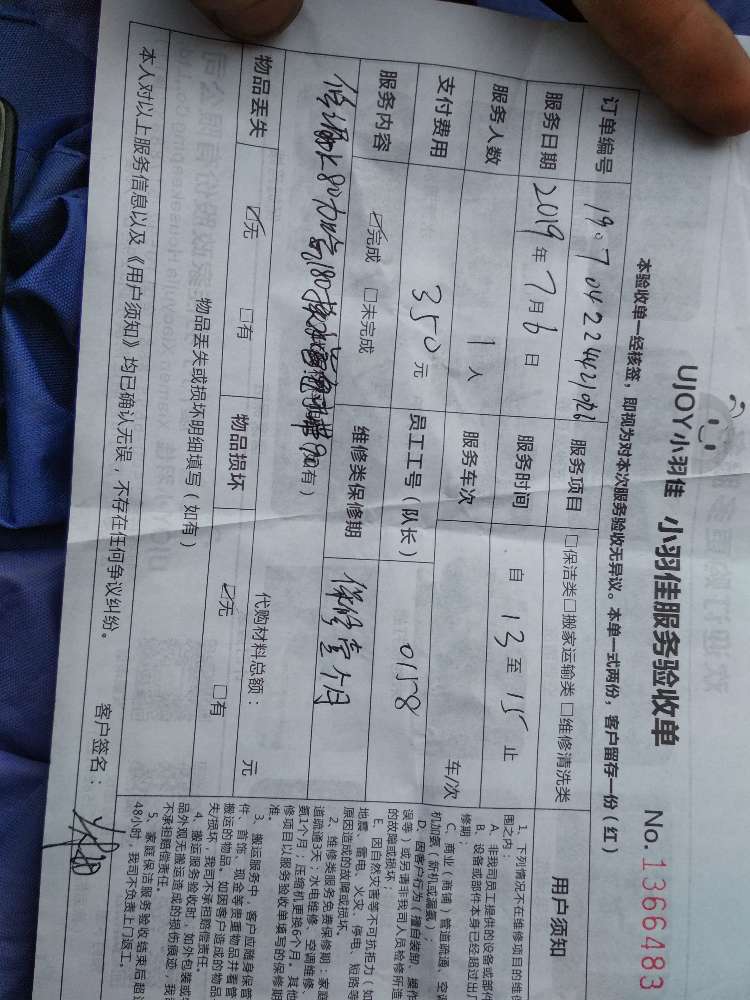 UJOY小羽佳 小羽佳服务验收单 No. 1366483
本验收单一经核签，即视为对本次服务验收无异议。本单一式两份，客户留存一份（红）
订单编号 服务项目 □保洁类□搬家运输类 □维修清洗类
服务日期 2019年7月6日 服务时间 自 13 至 15 止
服务人数 1人 服务车次 车/次
支付费用 350元 员工工号（队长） 0158
服务内容 ☑完成 □未完成 维修类保修期 保修壹个月
如有）
代购材料总额： 元
物品丢失 ☑无 □有 物品损坏 ☑无 □有
物品丢失或损坏明细填写（如有）
本人对以上服务信息以及《用户须知》均已确认无误，不存在任何争议纠纷。
客户签名：
用户须知
1、下列情况不在维修项目的维
围之内：
A、非我司员工提供的设备或部件
B、设备或部件本身已经超过出厂
修期；
C、商业（商铺）管道疏通、空调
机加氨（新机或漏氨）；
D、因客户行为（擅自装卸、操作
误等）或另请非我司人员检修所造
的故障或损坏；
E、因自然灾害等不可抗拒力（如
地震、雷电、火灾、停电、短路等
原因造成的故障或损坏。
2、维修类服务免费保修期：家庭
道疏通3天；水电维修、空调维修、
氨1个月；压缩机更换6个月。其他
修项目以服务验收单填写的保修期
准。
3、搬运服务中，客户应随身保管
件、首饰、现金等贵重物品并看管
搬运的物品。如因客户造成的物品
失/损坏，我司不承担赔偿责任。
4、搬运服务验收时，如外包装或
品外观无搬运造成的损伤痕迹，我
不承担赔偿责任。
5、家庭保洁服务验收结束后超过
48小时，我司不负责上门返工。